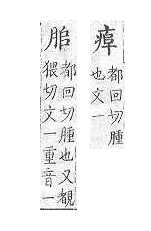 都回切腫
也文一
都回切腫也又覩
猥切文一重音一